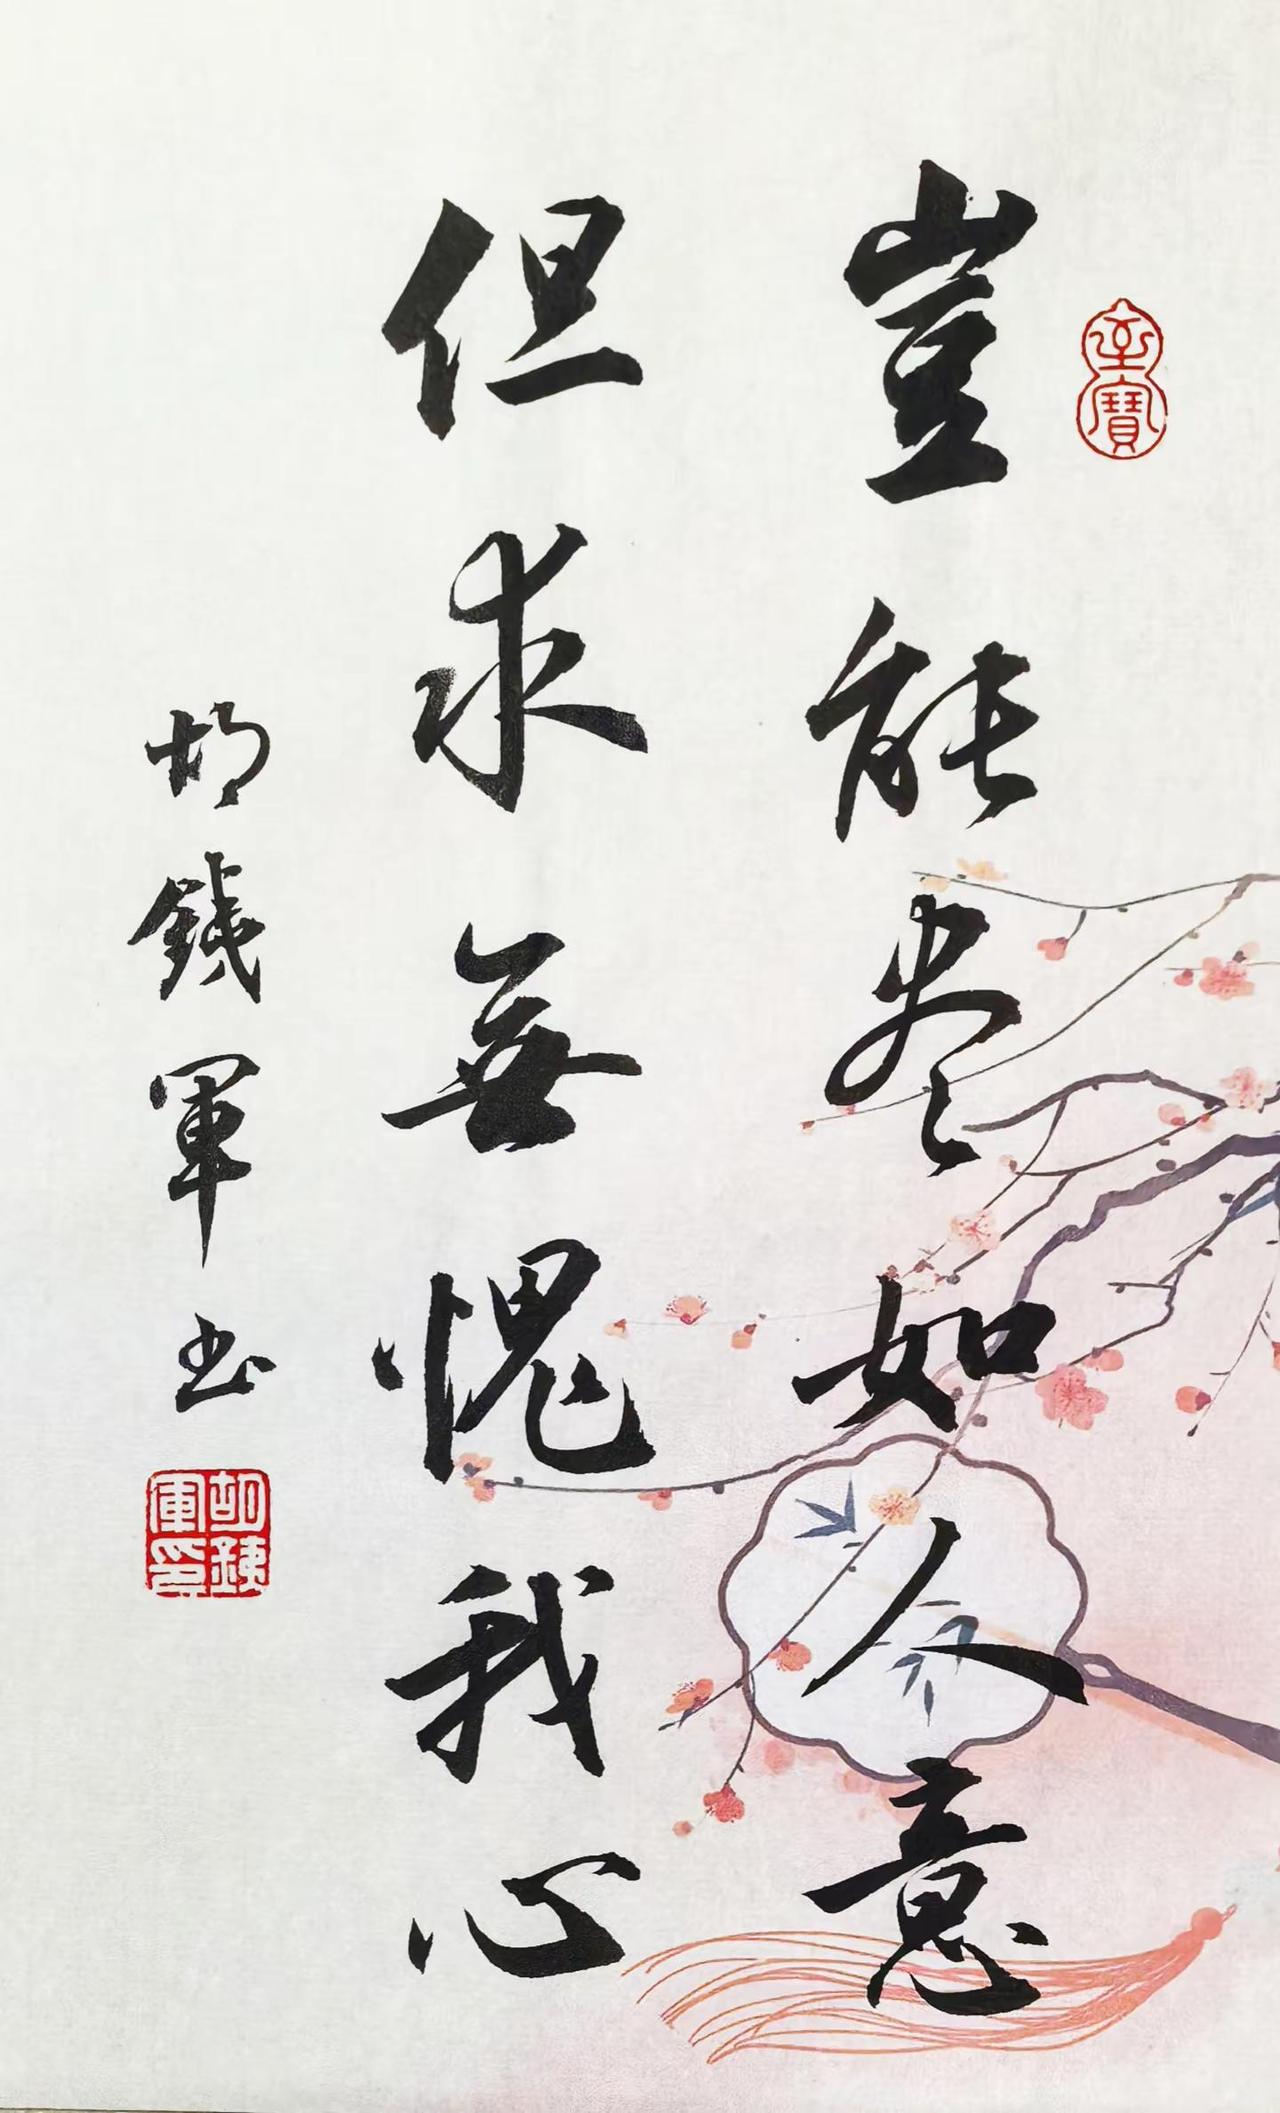 至寶
豈能尽如人意
但求無愧我心
胡銕軍书
胡銕軍印